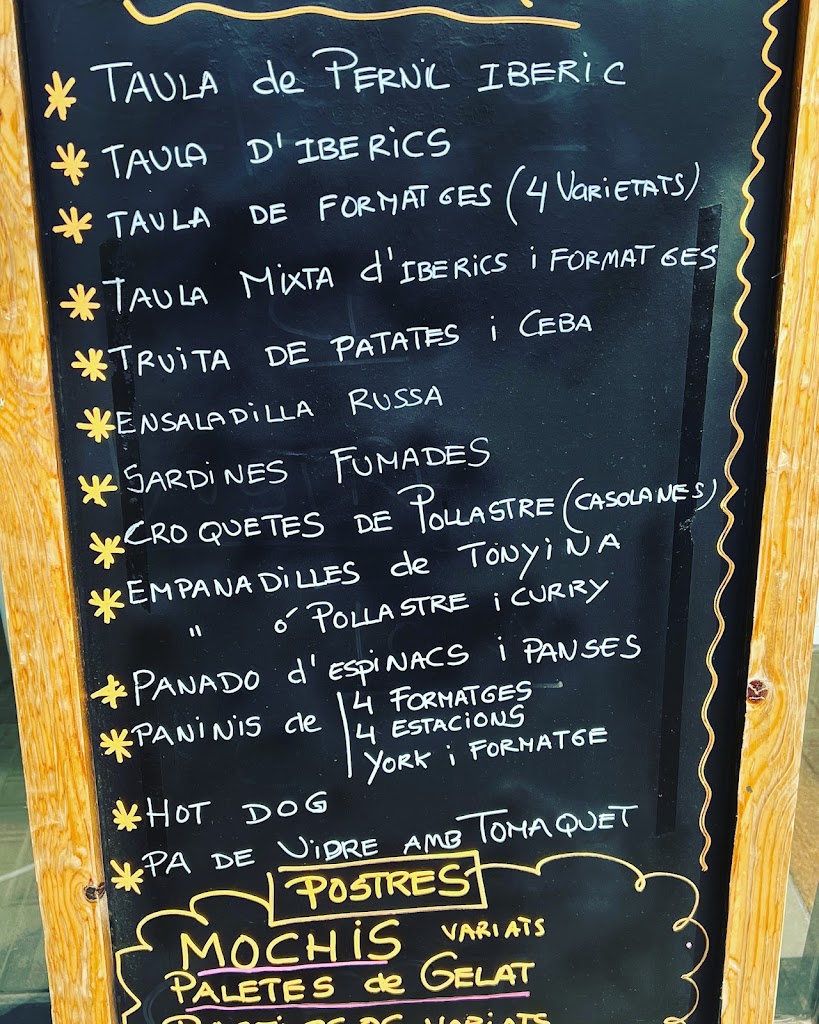 TAULA de PERNIL IBERIC
TAULA D'IBERICS
TAULA DE FORMATGES (4 VARIETATS)
TAULA MIXTA d'IBERICS i FORMATGES
TRUITA DE PATATES i CEBA
ENSALADILLA RUSSA
SARDINES FUMADES
CROQUETES DE POLLASTRE (CASOLANES)
EMPANADILLES de TONYINA
" ó POLLASTRE i CURRY
PANADO d'ESPINACS i PANSES
PANINIS de 4 FORMATGES
4 ESTACIONS
YORK i FORMATGE
HOT DOG
PA DE VIDRE AMB TOMAQUET
POSTRES
MOCHIS VARIATS
PALETES de GELAT
VARIATS